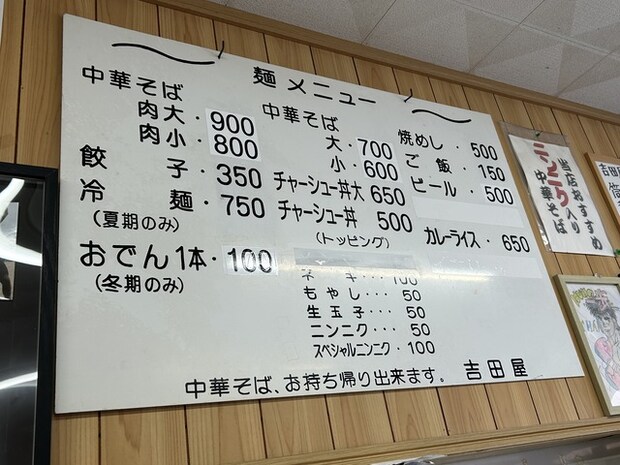 麺メニュー
中華そば
肉大・900
肉小・800
餃子・350
冷麺・750
(夏期のみ)
おでん1本・100
(冬期のみ)
中華そば
大・700
小・600
チャーシュー丼大 650
チャーシュー丼 500
(トッピング)
ネギ・・・100
もやし・・・50
生玉子・・・50
ニンニク・・50
スペシャルニンニク・100
焼めし・500
ご飯・150
ビール・500
カレーライス・650
中華そば、お持ち帰り出来ます。 吉田屋
当店おすすめ
ニンニク入り
中華そば
吉田